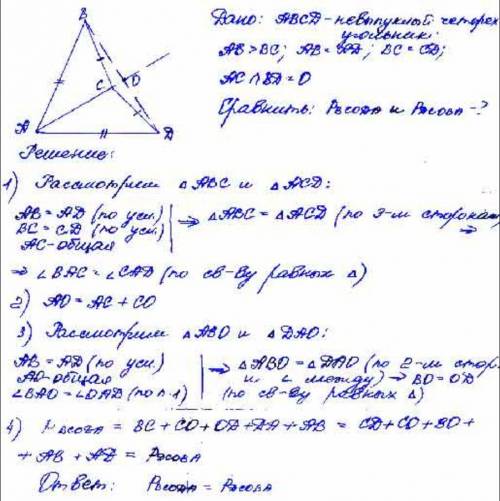 B
C
O
A
D
Дано: ABCD - невыпуклый четырех
угольник;
AB > BC; AB = AD; BC = CD;
AC ∩ BD = O
Сравнить: и -?
Решение:
1) Рассмотрим △ ABC и △ ACD:
AB = AD (по усл.)
BC = CD (по усл.)
AC - общая
⇒ △ABC = △ACD (по 3-м сторонам)
⇒
⇒ ∠BAC = ∠CAD (по св-ву равных △)
2) AO = AC + CO
3) Рассмотрим △ ABO и △ DAO:
AB = AD (по усл.)
AO - общая
∠BAO = ∠OAD (по п.1)
⇒ △ABO = △DAO (по 2-м стор.
и ∠ между) ⇒ BO = OD
(по св-ву равных △)
4) = BC + CO + OD + DA + AB = CD + CO + BO +
+ AB + AD =
Ответ: =